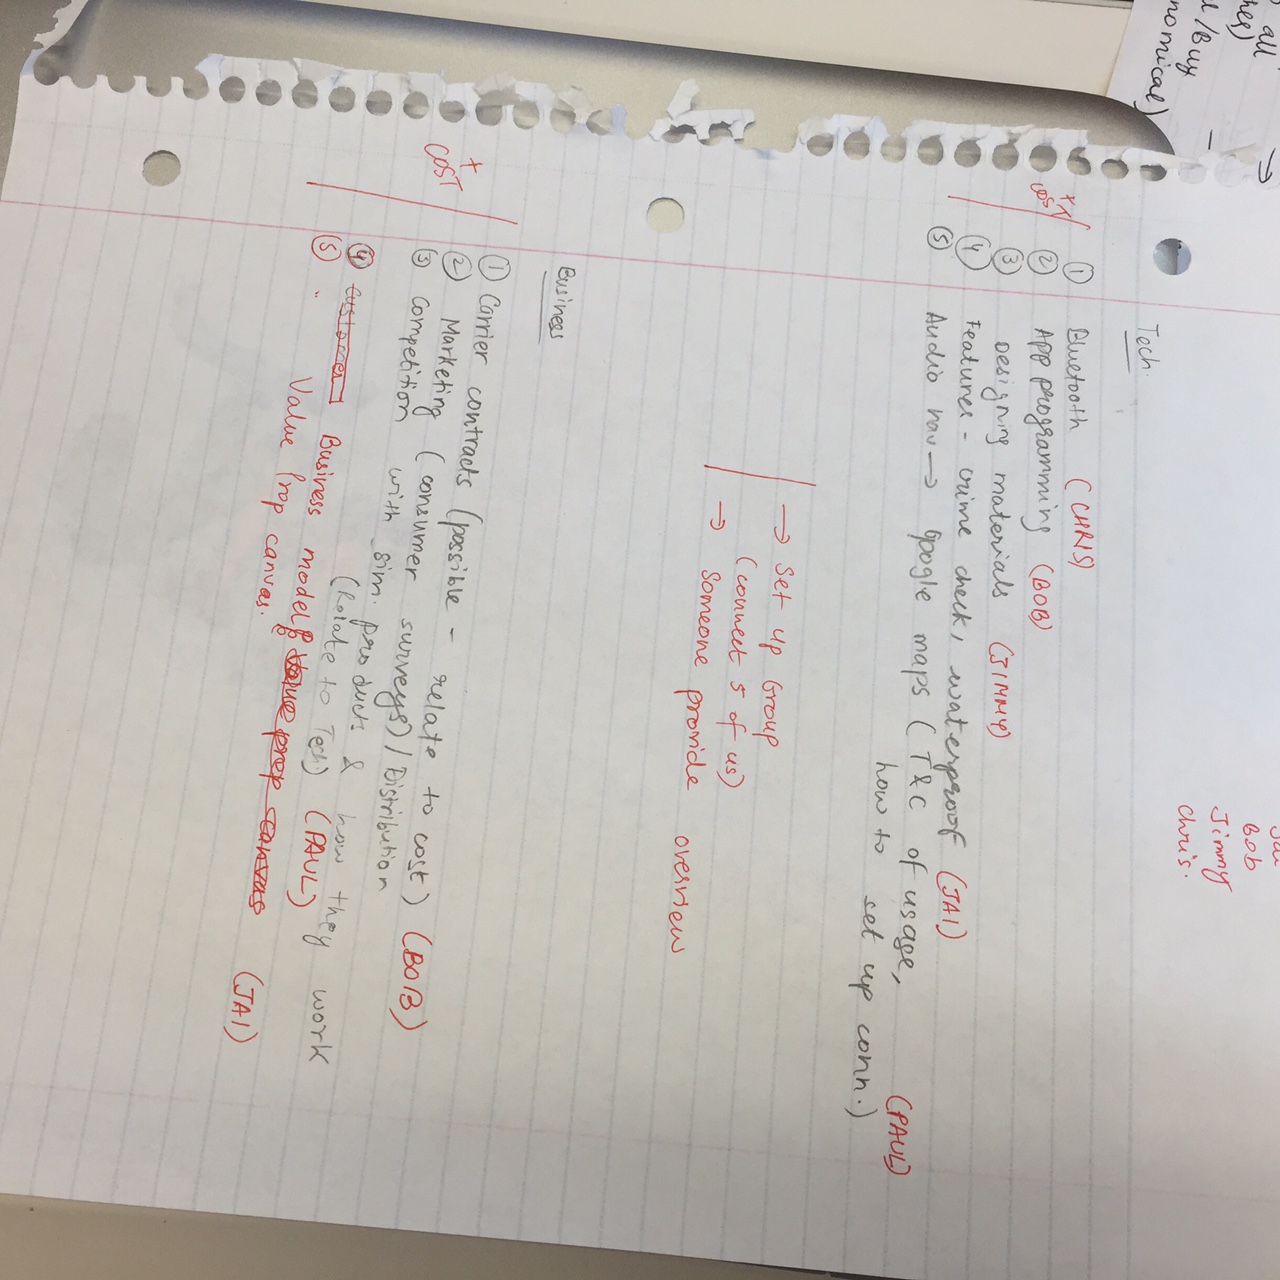 all
nomical)
Bob
Jimmy
Chris.
Tech.
① Bluetooth (CHRIS)
+ COST
② App programming (BOB)
③ Designing materials (JIMMY)
④ Features - crime check, waterproof (JAI)
⑤ Audio nav → Google maps (T&C of usage,
how to set up conn.) (PAUL)
→ Set up Group
(connect 5 of us)
→ Someone provide overview
Business
① Carrier contracts (possible - relate to cost) (BOB)
+ COST
② Marketing (consumer surveys) / Distribution
③ Competition with sim. products & how they work
(Relate to Tech) (PAUL)
④ customer Business model & value prop canvas
⑤ Value Prop canvas. (JAI)